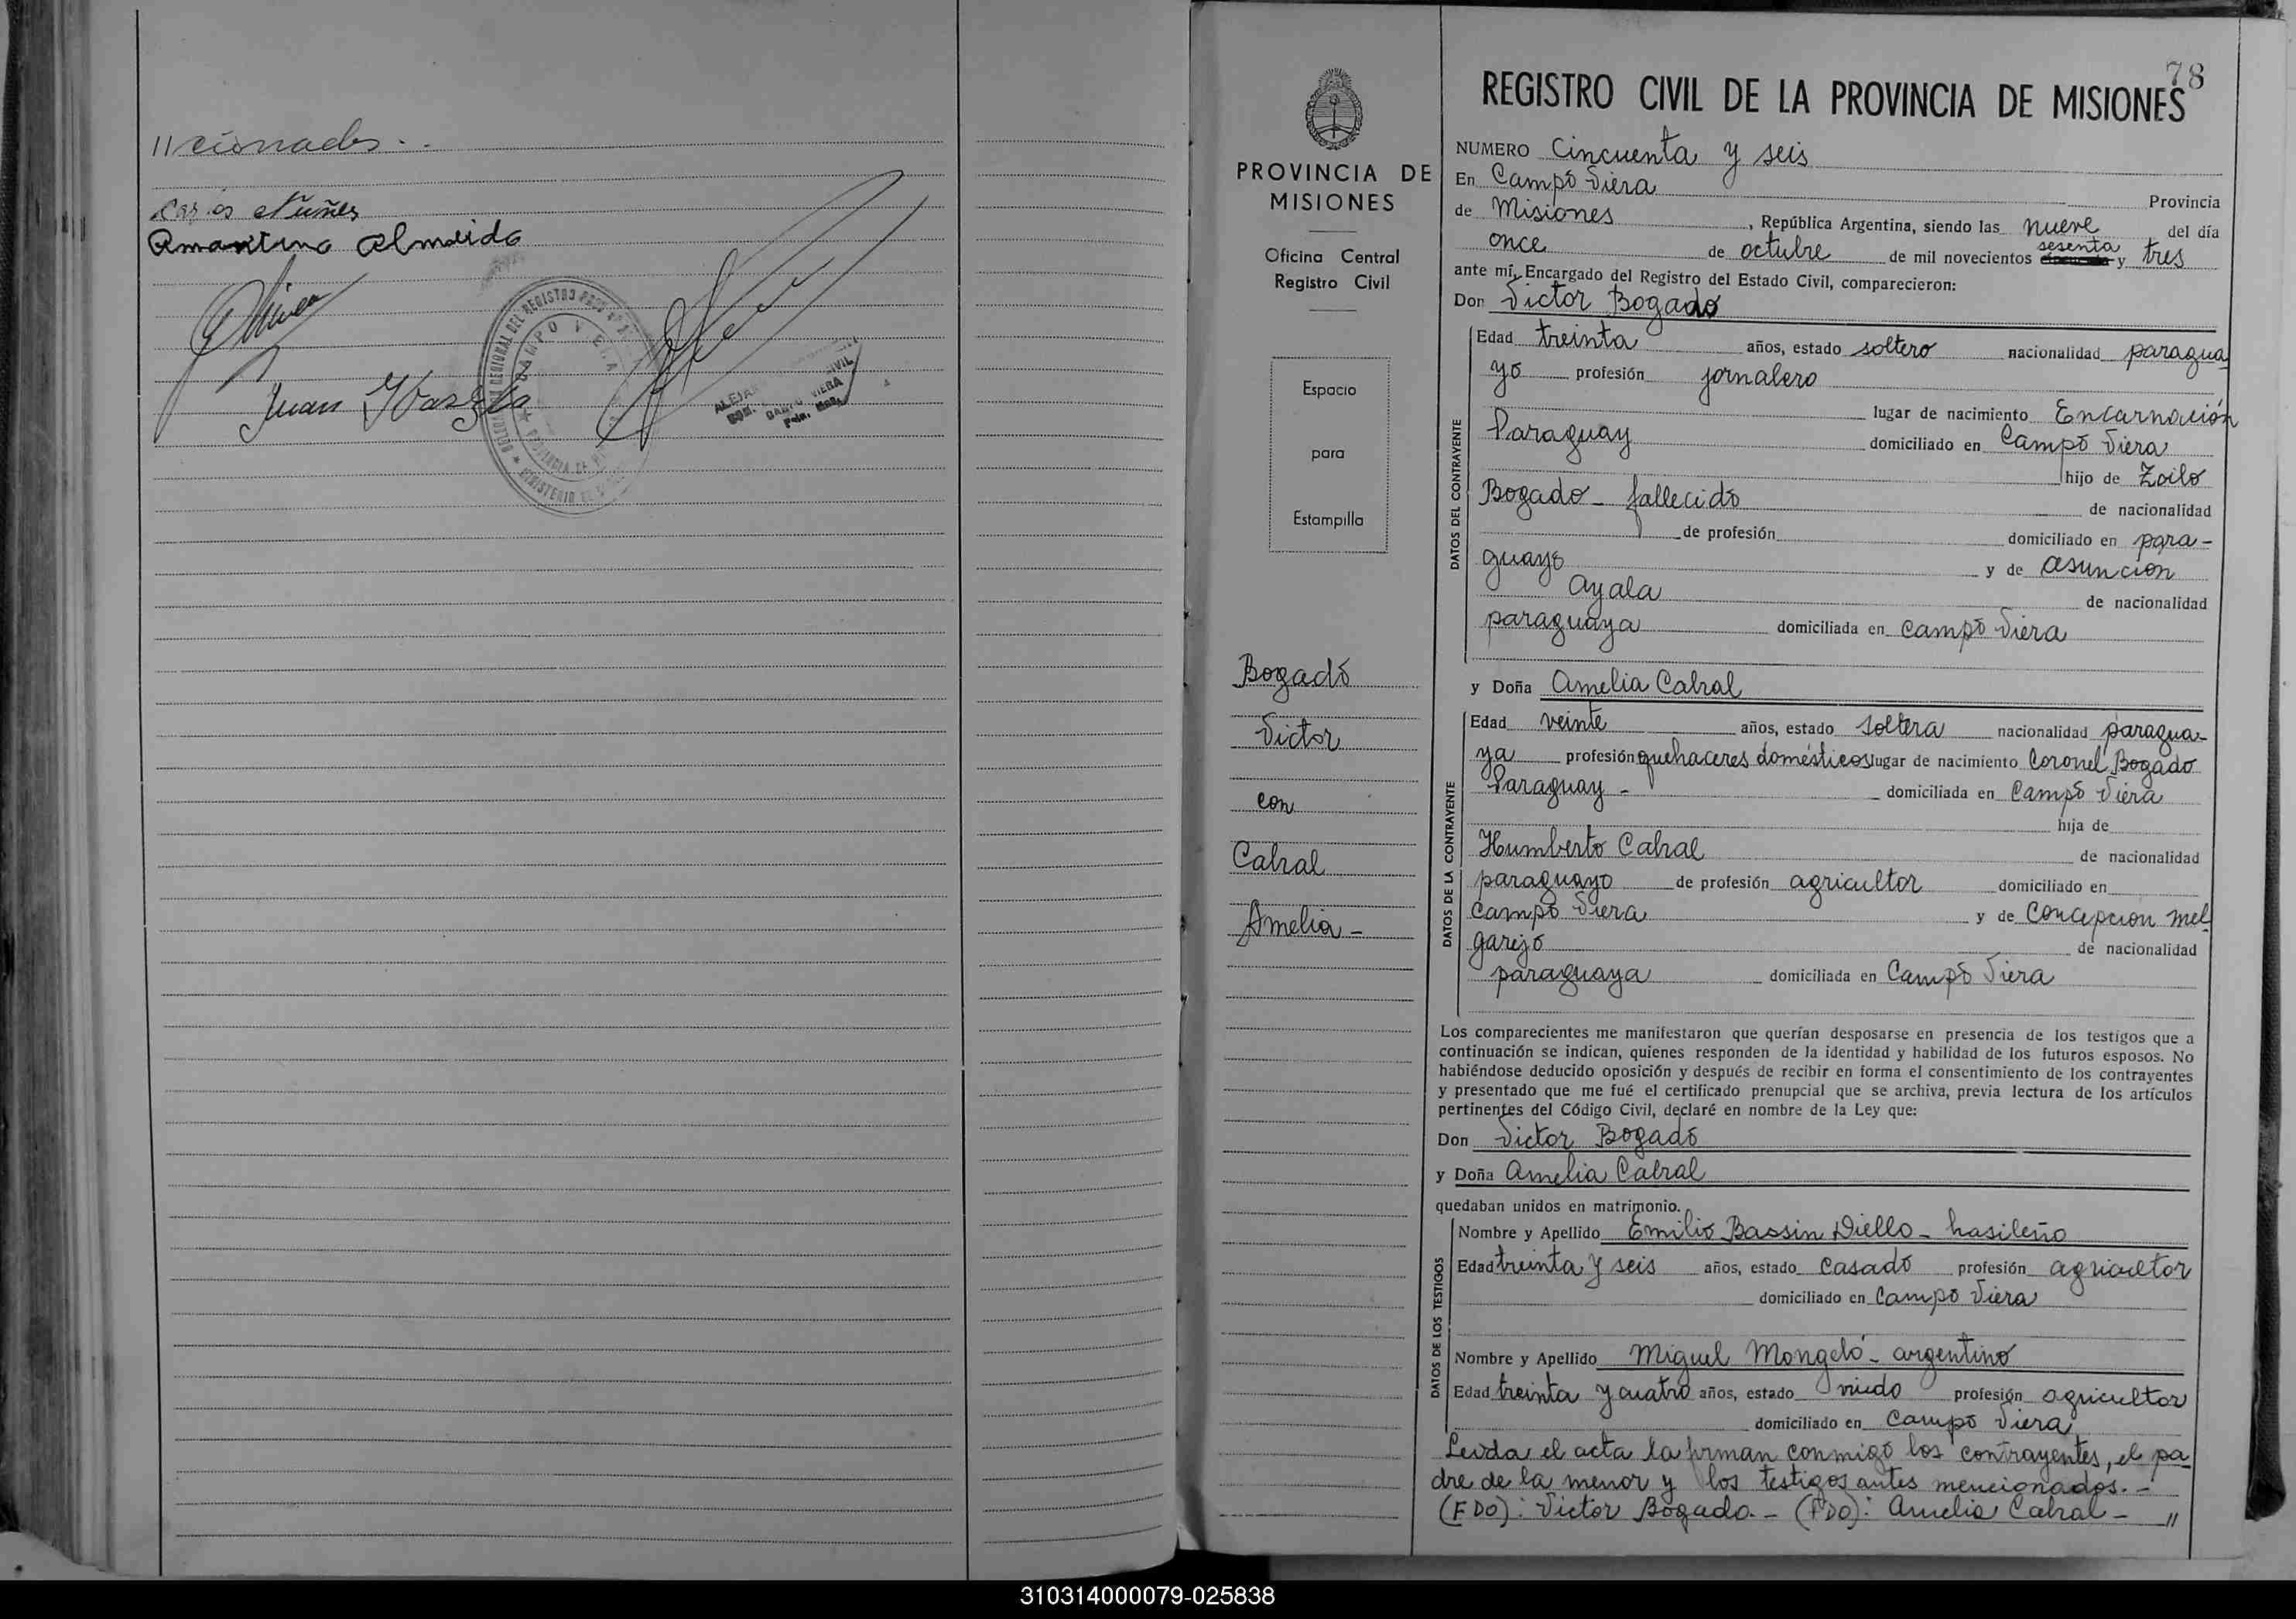 // cionados. -
Carlos Nuñes
Amantino Almeida
Juan
CAMPO VIERA
78
REGISTRO CIVIL DE LA PROVINCIA DE MISIONES
PROVINCIA DE
MISIONES
Oficina Central
Registro Civil
Espacio
para
Estampilla
Bogado
Victor
con
Cabral
Amelia -
NUMERO Cincuenta y seis
En Campo Viera Provincia
de Misiones, República Argentina, siendo las nueve del día
once de octubre de mil novecientos sesenta y tres
ante mí, Encargado del Registro del Estado Civil, comparecieron:
Don Victor Bogado
DATOS DEL CONTRAYENTE
Edad treinta años, estado soltero nacionalidad paragua
yo profesión jornalero
lugar de nacimiento Encarnación
Paraguay domiciliado en Campo Viera
hijo de Zoilo
Bogado - fallecido de nacionalidad
de profesión domiciliado en para-
guayo y de Asuncion
Ayala de nacionalidad
paraguaya domiciliada en Campo Viera
y Doña Amelia Cabral
DATOS DE LA CONTRAYENTE
Edad veinte años, estado soltera nacionalidad paragua-
ya profesión quehaceres domésticos lugar de nacimiento Coronel Bogado
Paraguay - domiciliada en Campo Viera
hija de
Humberto Cabral de nacionalidad
paraguayo de profesión agricultor domiciliado en
Campo Viera y de Concepcion Mel
garejo de nacionalidad
paraguaya domiciliada en Campo Viera
Los comparecientes me manifestaron que querían desposarse en presencia de los testigos que a
continuación se indican, quienes responden de la identidad y habilidad de los futuros esposos. No
habiéndose deducido oposición y después de recibir en forma el consentimiento de los contrayentes
y presentado que me fué el certificado prenupcial que se archiva, previa lectura de los artículos
pertinentes del Código Civil, declaré en nombre de la Ley que:
Don Victor Bogado
y Doña Amelia Cabral
quedaban unidos en matrimonio.
DATOS DE LOS TESTIGOS
Nombre y Apellido Emilio Bassin Diello - brasileño
Edad treinta y seis años, estado casado profesión agricultor
domiciliado en Campo Viera
Nombre y Apellido Miguel Mongeló - argentino
Edad treinta y cuatro años, estado viudo profesión agricultor
domiciliado en Campo Viera
Leida el acta la firman conmigo los contrayentes, el pa
dre de la menor y los testigos antes mencionados. -
(FDO): Victor Bogado. - (FDO): Amelia Cabral - //
310314000079-025838